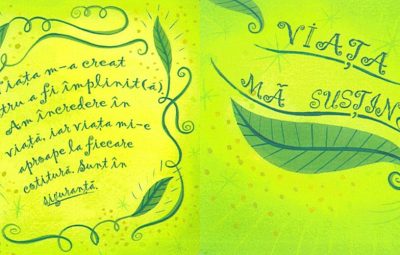 Viața m-a creat
tru a fi împlinit(ă).
Am încredere în
viață, iar viața mi-e
aproape la fiecare
cotitură. Sunt în
siguranță.
VIAȚA
MĂ SUSȚIN